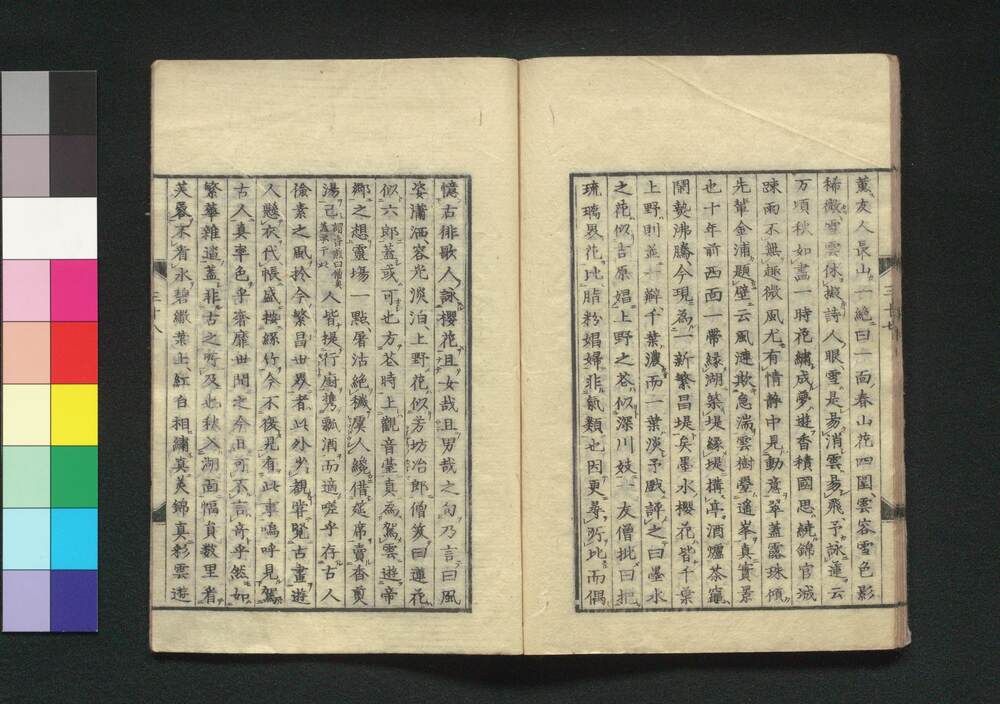 薫友人長山一絶曰一面春山花四圍雲容雪色影
稀微雪雲休擬詩人眼雪是易消雲易飛予詠蓮云
万頃秋如畵一時花繡成夢遊香積國思繞錦官城
踈雨不無趣微風尤有情静中見動意翠蓋露珠傾
先輩金浦題壁云風漣欺急湍雲樹疊遥峯真實景
也十年前西面一帶縁湖築堤縁堤搆亭酒爐茶竈
閙熱沸騰今現為一新繁昌堤矣墨水櫻花皆千葉
上野則並一辧千葉濃而一葉淡予戯評之曰墨水
之花似吉原娼上野之花似深川妓友僧批曰把
琉璃界花比脂粉娼婦非氣類也因更尋所比而偶
三十七
憶古徘歌人詠櫻花且女哉且男哉之句乃言曰風
姿瀟洒容光淡泊上野花似芳坊冶郎僧笑曰蓮花
似六郎蓋或可也方花時上觀音臺真為駕雲遊帝
鄉之想靈塲一點屠沽絶穢漢人纔借莚席賣香煎
湯已人皆提行厨携瓢酒而適嗟乎存古人
儉素之風於今繁昌世界者以外少觀甞覧古畫遊
人懸衣代帳盛按絲竹今不復見有此事嗚呼見駕
古人真率色乎奢靡世間之今日可不言奇乎然如
繁華雜遝蓋非古之所及也秋入湖面幅員數里者
芙蓉不省水碧繖葉上紅白相繡真美錦真彩雲遊
三十八